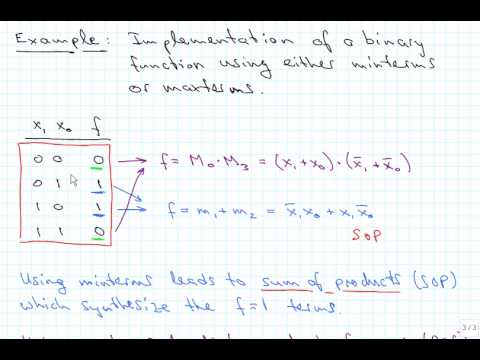 Example: Implementation of a binary
function using either minterms
or maxterms.
x₁ x₀ f
0 0 0
f = M₀·M₃ = (x₁+x₀)·(x̄₁+x̄₀)
0 1 1
1 0 1
f = m₁+m₂ = x̄₁x₀ + x₁x̄₀
SOP
1 1 0
Using minterms leads to sum of products (SOP)
which synthesize the f=1 terms.
3/3